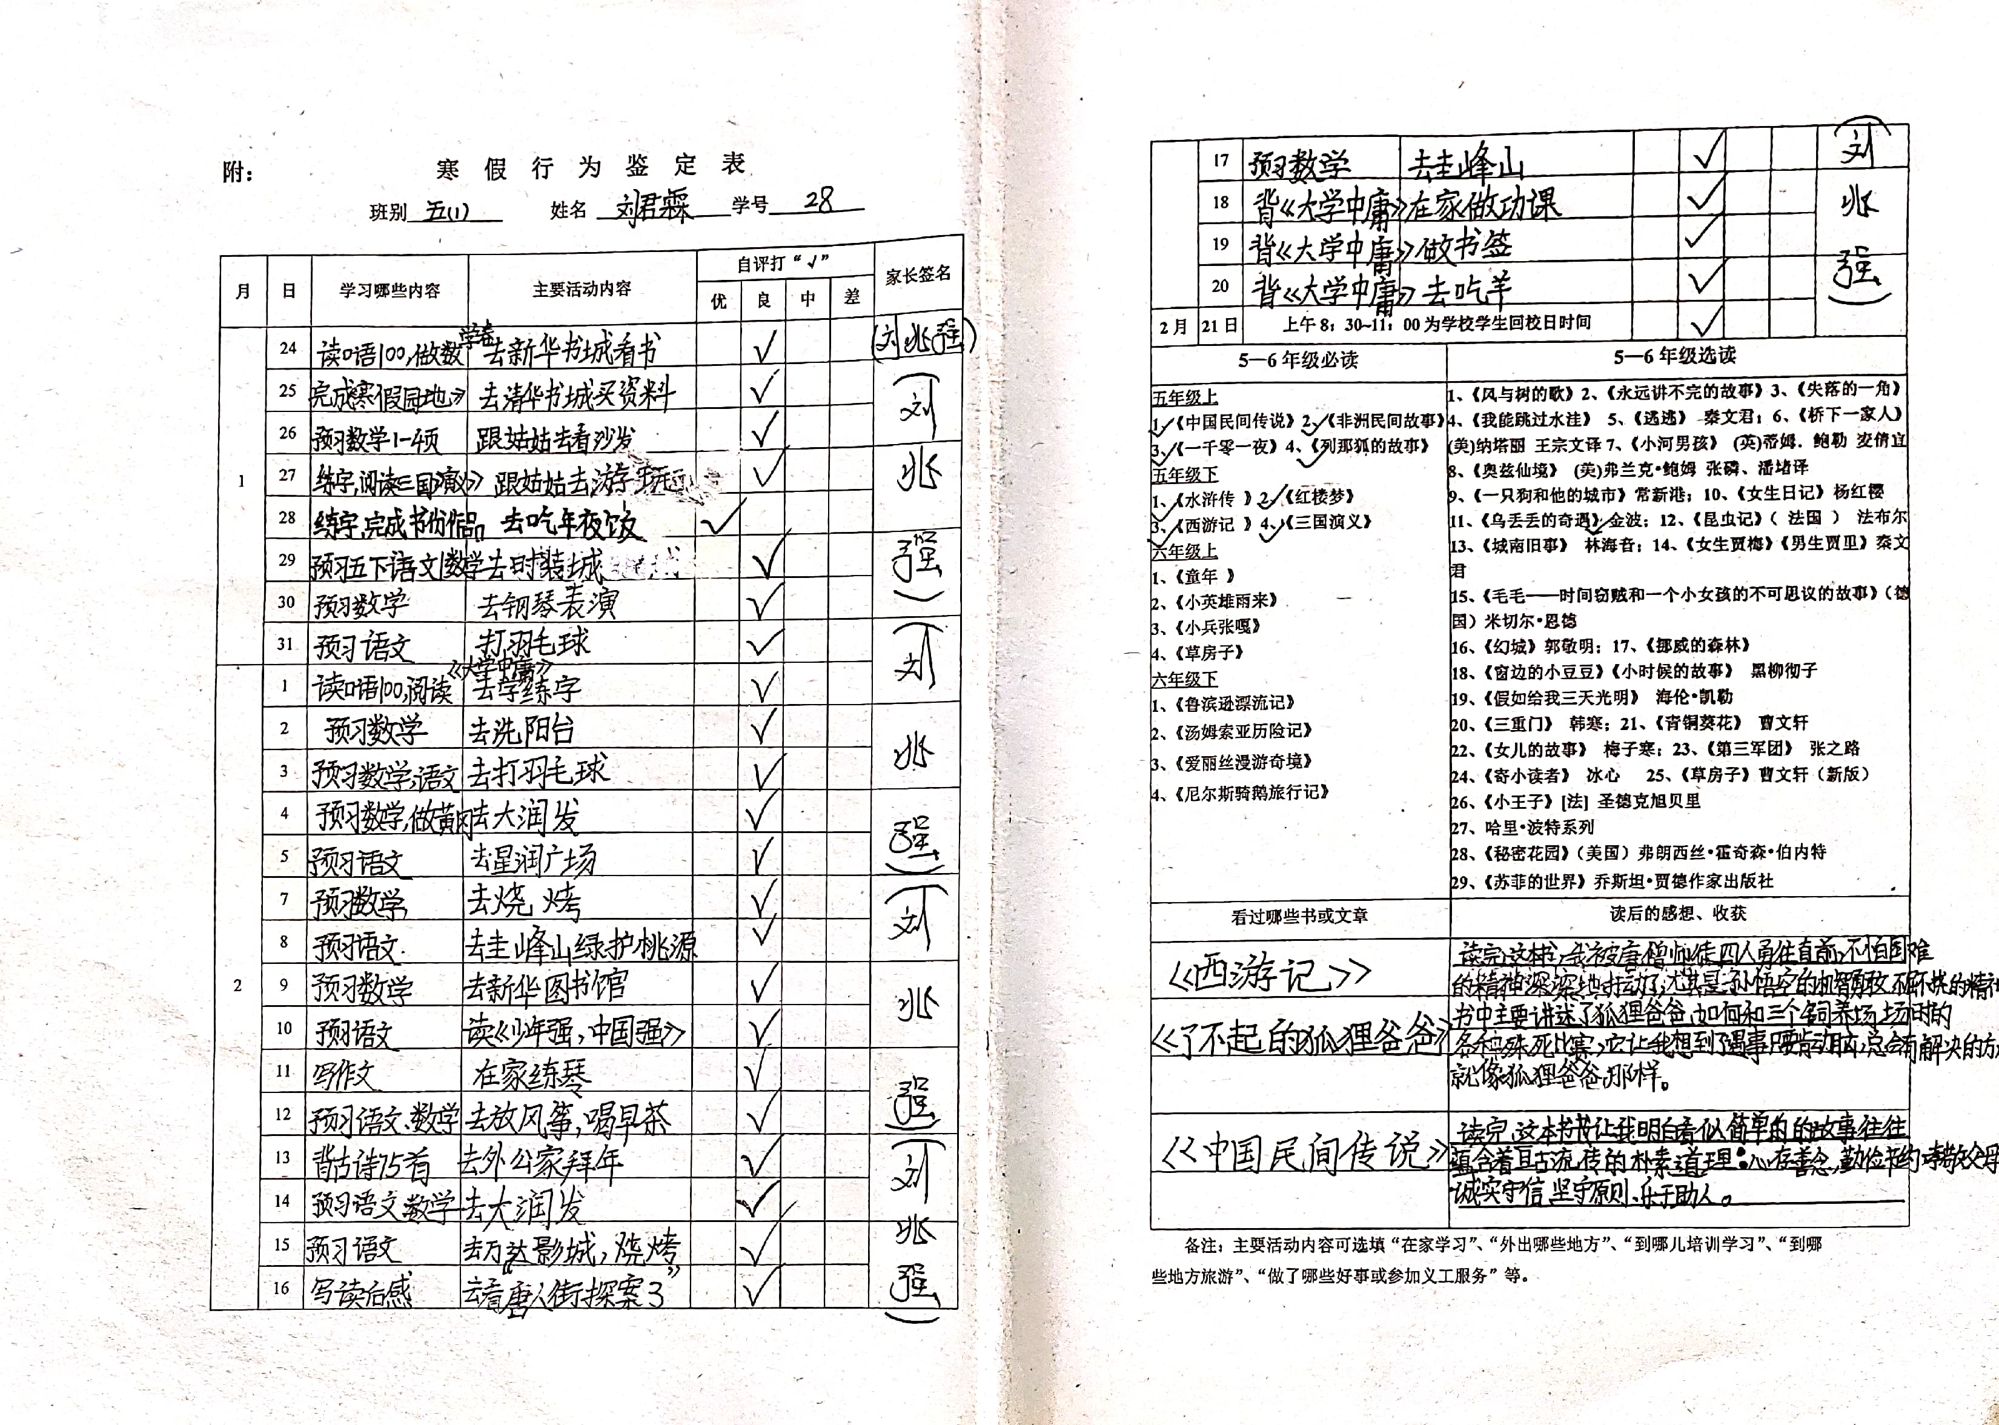 附：
寒假行为鉴定表
班别 五(1) 姓名 刘君霖 学号 28
月 日 学习哪些内容 主要活动内容 自评打“√” 家长签名
优 良 中 差
1
24 读口语100,做数学卷 去新华书城看书 √ (刘兆强)
25 完成寒假园地》 去清华书城买资料 √
26 预习数学1-4项 跟姑姑去看沙发 √
27 练字,阅读《三国演义》 跟姑姑去游学 √
28 练字,完成书 作品 去吃年夜饭 √
29 预习五下语文,数学 去时装城 √
30 预习数学 去钢琴表演 √
31 预习语文 打羽毛球 √
(刘兆强)
2
1 读口语100,阅读《大学中庸》 去学练字 √
2 预习数学 去洗阳台 √
3 预习数学,语文 去打羽毛球 √
4 预习数学,做黄冈 去大润发 √
5 预习语文 去星润广场 √
(刘兆强)
7 预习数学 去烧烤 √
8 预习语文. 去圭峰山绿护桃源 √
9 预习数学 去新华图书馆 √
10 预习语文 读《少年强,中国强》 √
11 写作文 在家练琴 √
12 预习语文、数学 去放风筝,喝早茶 √
(刘兆强)
13 背古诗75首 去外公家拜年 √
14 预习语文数学 去大润发 √
15 预习语文 去万达影城,烧烤 √
16 写读后感 去看“唐人街探案3” √
(刘兆强)
17 预习数学 去圭峰山 √
18 背《大学中庸》 在家做功课 √
19 背《大学中庸》 做书签 √
20 背《大学中庸》 去吃羊 √
(刘兆强)
2月 21日 上午8：30~11：00为学校学生回校日时间 √
5—6年级必读
五年级上
1、《中国民间传说》2、《非洲民间故事》
3、《一千零一夜》4、《列那狐的故事》
五年级下
1、《水浒传 》2、《红楼梦》
3、《西游记 》4、《三国演义》
六年级上
1、《童年 》
2、《小英雄雨来》
3、《小兵张嘎》
4、《草房子》
六年级下
1、《鲁滨逊漂流记》
2、《汤姆索亚历险记》
3、《爱丽丝漫游奇境》
4、《尼尔斯骑鹅旅行记》
5—6年级选读
1、《风与树的歌》2、《永远讲不完的故事》3、《失落的一角》
4、《我能跳过水洼》 5、《逃逃》 秦文君；6、《桥下一家人》
(美)纳塔丽 王宗文译 7、《小河男孩》 (英)蒂姆．鲍勒 麦倩宜
8、《奥兹仙境》 (美)弗兰克•鲍姆 张磷、潘堵译
9、《一只狗和他的城市》常新港；10、《女生日记》杨红樱
11、《乌丢丢的奇遇》金波；12、《昆虫记》（ 法国 ） 法布尔
13、《城南旧事》 林海音；14、《女生贾梅》《男生贾里》秦文
君
15、《毛毛——时间窃贼和一个小女孩的不可思议的故事》（德
国）米切尔•恩德
16、《幻城》郭敬明；17、《挪威的森林》
18、《窗边的小豆豆》《小时候的故事》 黑柳彻子
19、《假如给我三天光明》 海伦•凯勒
20、《三重门》 韩寒；21、《青铜葵花》 曹文轩
22、《女儿的故事》 梅子寒；23、《第三军团》 张之路
24、《寄小读者》 冰心 25、《草房子》曹文轩（新版）
26、《小王子》[法] 圣德克旭贝里
27、哈里•波特系列
28、《秘密花园》（美国）弗朗西丝•霍奇森•伯内特
29、《苏菲的世界》乔斯坦•贾德作家出版社
看过哪些书或文章 读后的感想、收获
《西游记》
读完这本书,我被唐僧师徒四人勇往直前,不怕困难
的精神深深地打动了,尤其是孙悟空的机智勇敢,不屈不挠的精神
《了不起的狐狸爸爸》
书中主要讲述了狐狸爸爸,如何和三个饲养场场时的
各种殊死比赛,它让我想到了遇事只要肯动脑,总会有解决的方法
就像狐狸爸爸那样。
《中国民间传说》
读完这本书让我明白看似简单的的故事往往
蕴含着亘古流传的朴素道理：心存善念,勤俭节约,孝敬父母
诚实守信,坚守原则,乐于助人。
备注：主要活动内容可选填“在家学习”、“外出哪些地方”、“到哪儿培训学习”、“到哪
些地方旅游”、“做了哪些好事或参加义工服务”等。